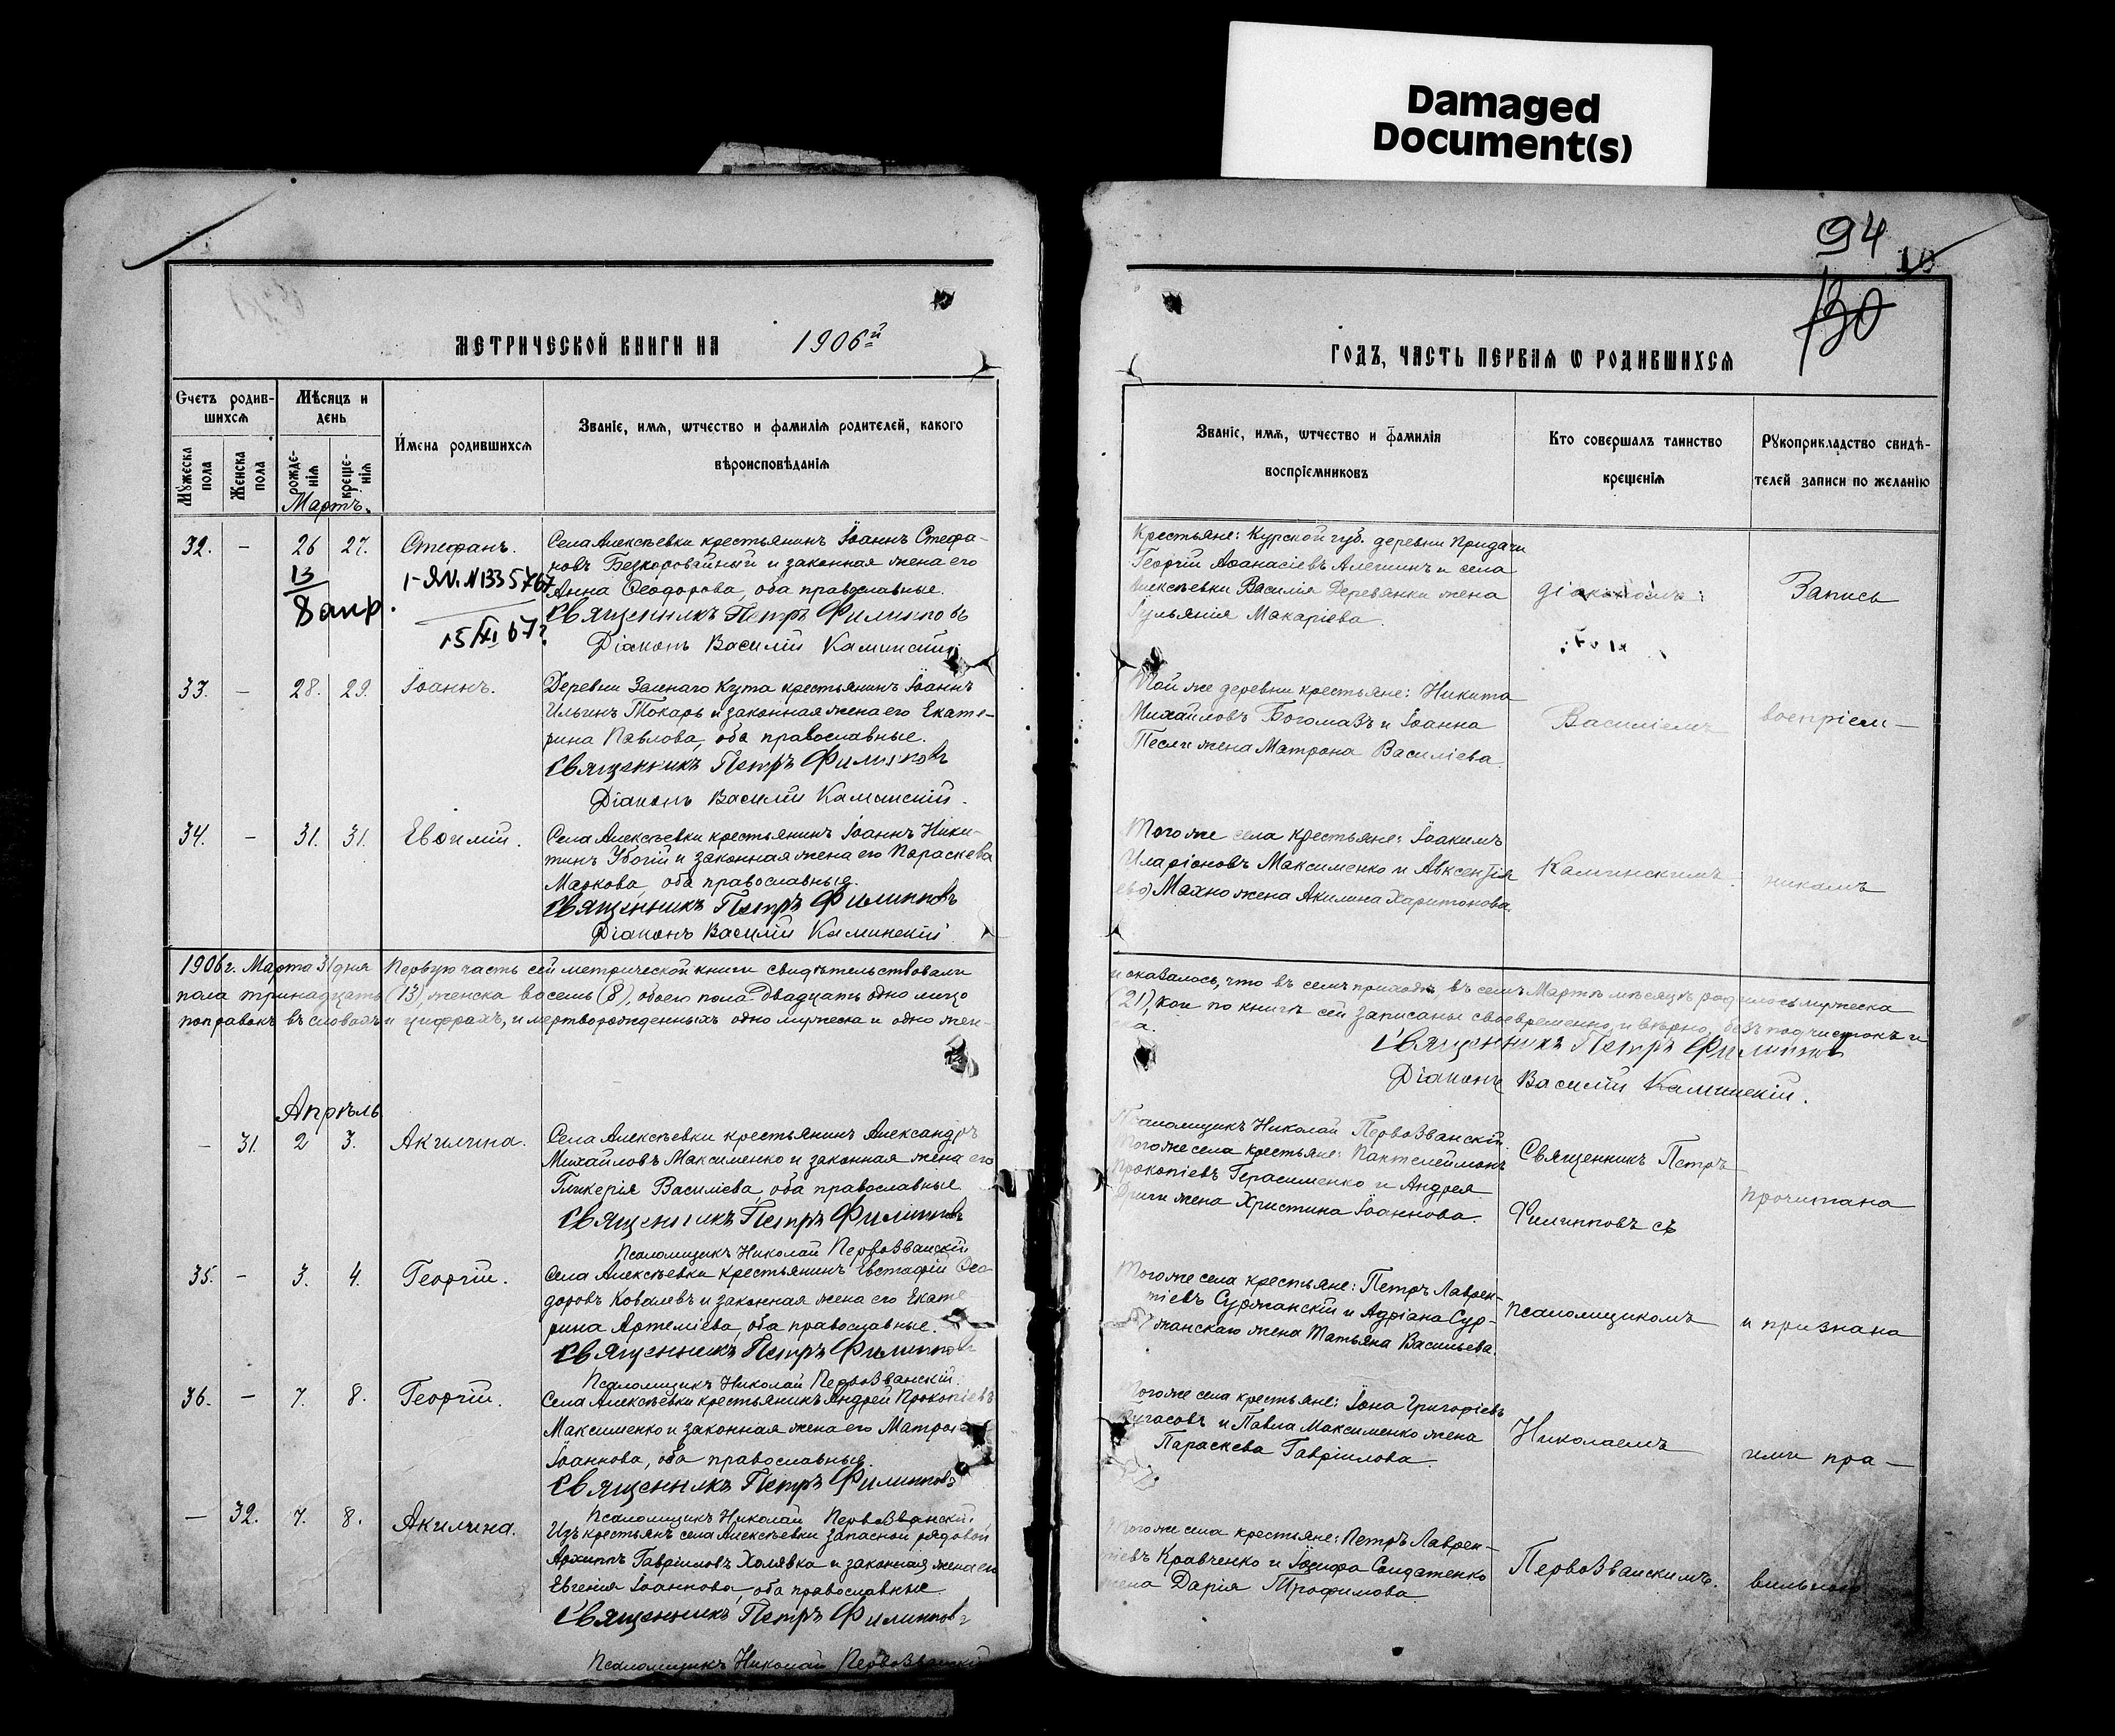 Damaged
Document(s)
94
10
130
МЕТРИЧЕСКОЙ КНИГИ НА 1906й
Счетъ родив-
шихсѧ
Мѣсяцъ и
день
Имена родившихсѧ
Званіе, имѧ, ѡтчество и фамилія родителей, какого
вѣроисповѣданіѧ
Мꙋжеска
пола
Женска
пола
рожде-
ніѧ
креще-
ніѧ
Мартъ.
32. - 26 27. Стефанъ.
13
8 апр.
1-ЯЛ N133 5767
15/XI 67г.
Села Алексѣевки крестьянинъ Іоаннъ Стефа-
новъ Безкоровайный и законная жена его
Анна Ѳеодорова, оба православные.
Священникъ Петръ Филипповъ
Діаконъ Василій Каминскій.
33. - 28. 29. Іоаннъ.
Деревни Зеленаго Кута крестьянинъ Іоаннъ
Ильинъ Токарь и законная жена его Екате-
рина Павлова, оба православные.
Священникъ Петръ Филипповъ
Діаконъ Василій Каминскій.
34. - 31. 31. Евѳимій.
Села Алексѣевки крестьянинъ Іоаннъ Ники-
тинъ Убогій и законная жена его Параскева
Маркова, оба православные.
Священникъ Петръ Филипповъ
Діаконъ Василій Каминскій
1906г. Марта 31 дня Первую часть сей метрической книги свидѣтельствовали
пола тринадцать (13), женска восемь (8), обоего пола двадцать одно лицо
поправокъ въ словахъ и цифрахъ, и мертворожденныхъ одно мужеска и одно жен-
Апрѣль
- 31. 2 3. Акилина.
Села Алексѣевки крестьянинъ Александръ
Михайловъ Максименко и законная жена его
Гликерія Василіева, оба православные
Священникъ Петръ Филипповъ
Псаломщикъ Николай Первозванскій
35. - 3. 4. Георгій.
Села Алексѣевки крестьянинъ Евстафій Ѳео-
доровъ Ковалевъ и законная жена его Екате
рина Артеміева, оба православные.
Священникъ Петръ Филипповъ
Псаломщикъ Николай Первозванскій.
36. - 7. 8. Георгій.
Села Алексѣевки крестьянинъ Андрей Прокопіевъ
Максименко и законная жена его Матрона
Іоаннова, оба православные.
Священникъ Петръ Филипповъ
Псаломщикъ Николай Первозванскій.
- 32. 7. 8. Акилина.
Изъ крестьянъ села Алексѣевки запасной рядовой
Архиппъ Гавріиловъ Халявка и законная жена его
Евгенія Іоаннова, оба православные
Священникъ Петръ Филипповъ
Псаломщикъ Николай Первозванскій
ГОДЪ, ЧАСТЬ ПЕРВАѦ Ѡ РОДИВШИХСѦ
Званіе, имѧ, ѡтчество и фамилія
воспріемниковъ
Кто совершалъ таинство
крещеніѧ
Рꙋкоприкладство свидѣ-
телей записи по желанію
Крестьяне: Курской губ. деревни Придачи
Георгій Аѳанасіевъ Алешинъ и села
Алексѣевки Василія Деревянки жена
Іуліанія Макаріева.
діакономъ
Запись
Той же деревни крестьяне: Никита
Михайловъ Богомазъ и Іоанна
Тесли жена Матрона Василіева.
Василіемъ
воспріем-
Того же села крестьяне: Іоакимъ
Иларіоновъ Максименко и Авксентія
Махно жена Акилина Харитонова.
Каминскимъ.
никамъ
и оказалось, что въ семъ приходѣ, въ семъ Мартѣ мѣсяцѣ родилось мужеска
(21), кои по книгѣ сей записаны своевременно, и вѣрно, безъ подчистокъ и
ка.
Священникъ Петръ Филипповъ
Діаконъ Василій Каминскій.
Псаломщикъ Николай Первозванскій.
Того же села крестьяне: Пантелеймонъ
Прокопіевъ Герасименко и Андрея
жена Христина Іоаннова.
Священникъ Петръ
Филипповъ съ
прочитана
Того же села крестьяне: Петръ Лаврен-
тіевъ Суржанскій и Адріана Сур-
жанскаго жена Татьяна Васильева.
псаломщикомъ
и признана
Того же села крестьяне: Іона Григоріевъ
Пугасовъ и Павла Максименко жена
Параскева Гавріилова.
Николаемъ
ими пра-
Того же села крестьяне: Петръ Лаврен-
тіевъ Кравченко и Іосифа Солдатенко
жена Дарія Трофимова
Первозванскимъ.
вильною